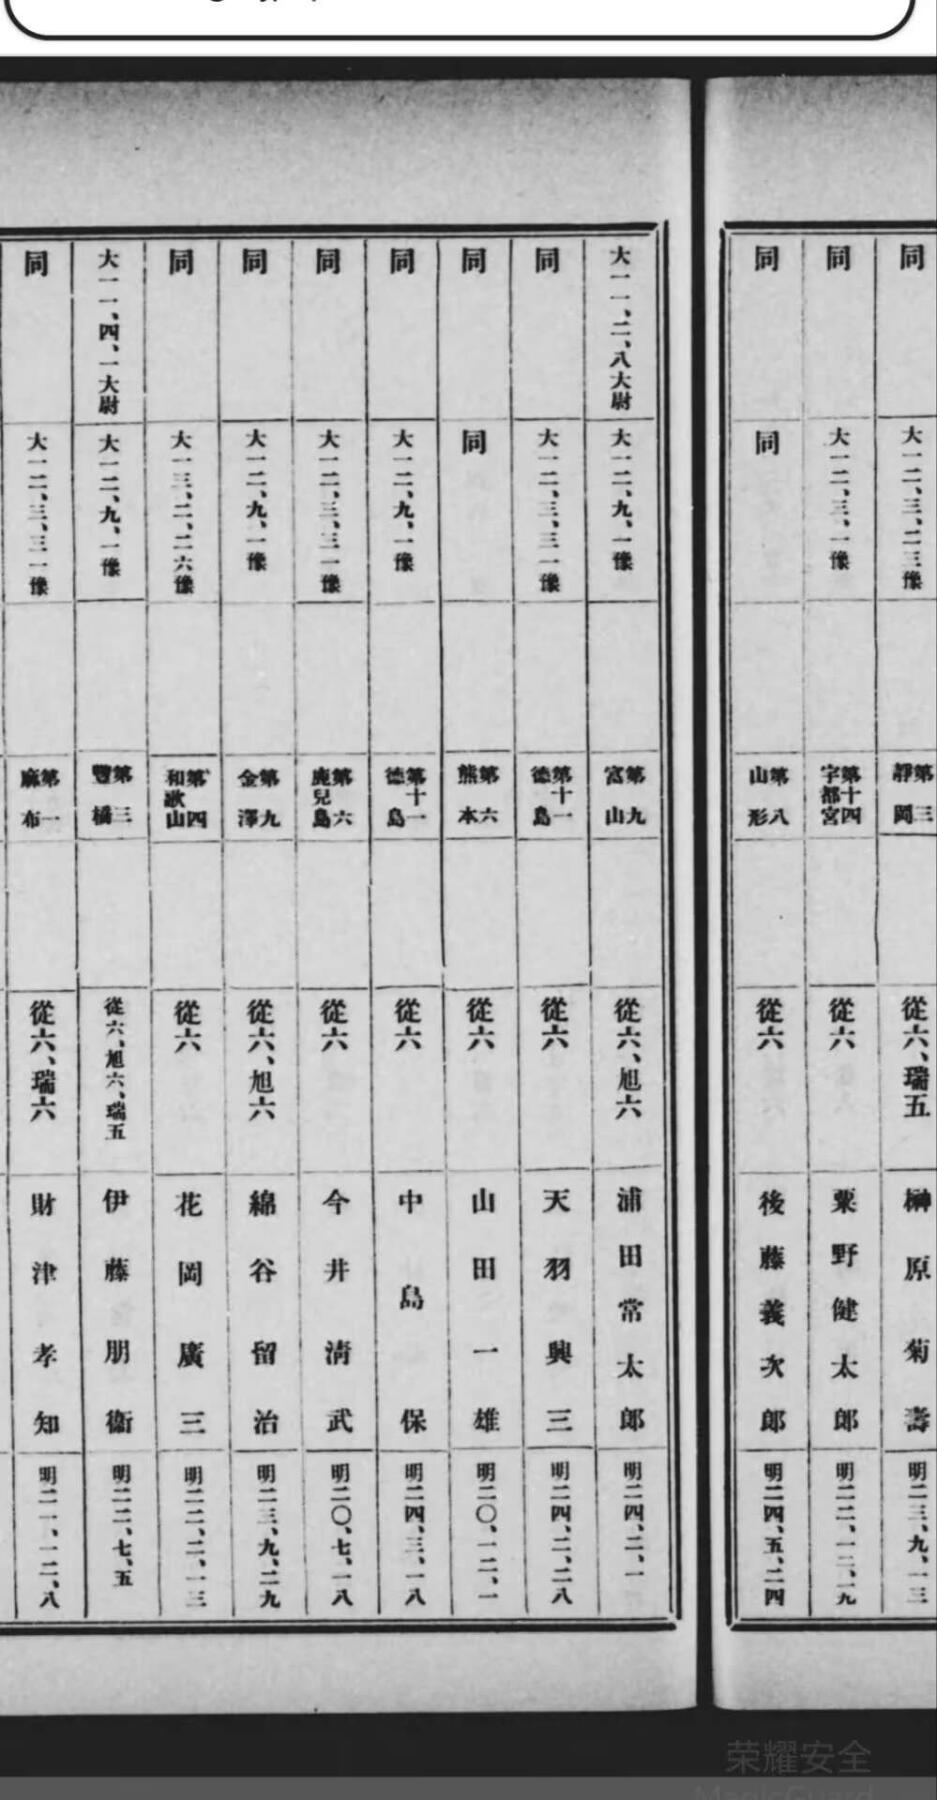 同 大一二、三、二三豫 靜岡 第三 從六、瑞五 榊原菊壽 明二三、九、一三
同 大一二、三、一豫 宇都宮 第十四 從六 粟野健太郎 明二二、一二、一九
同 同 山形 第八 從六 後藤義次郎 明二四、五、二四
大一一、二、八大尉 大一二、九、一豫 富山 第九 從六、旭六 浦田常太郎 明二四、二、一
同 大一二、三、三一豫 德島 第十一 從六 天羽興三 明二四、二、二八
同 同 熊本 第六 從六 山田一雄 明二〇、一二、一
同 大一二、九、一豫 德島 第十一 從六 中島保 明二四、三、一八
同 大一二、三、三一豫 鹿兒島 第六 從六 今井淸武 明二〇、七、一八
同 大一二、九、一豫 金澤 第九 從六、旭六 綿谷留治 明二三、九、二九
同 大一三、二、二六豫 和歌山 第四 從六 花岡廣三 明二二、二、一三
大一一、四、一大尉 大一二、九、一豫 豐橋 第三 從六、旭六、瑞五 伊藤朋衞 明二二、七、五
同 大一二、三、三一豫 麻布 第一 從六、瑞六 財津孝知 明二一、一二、八
荣耀安全
MagicGuard